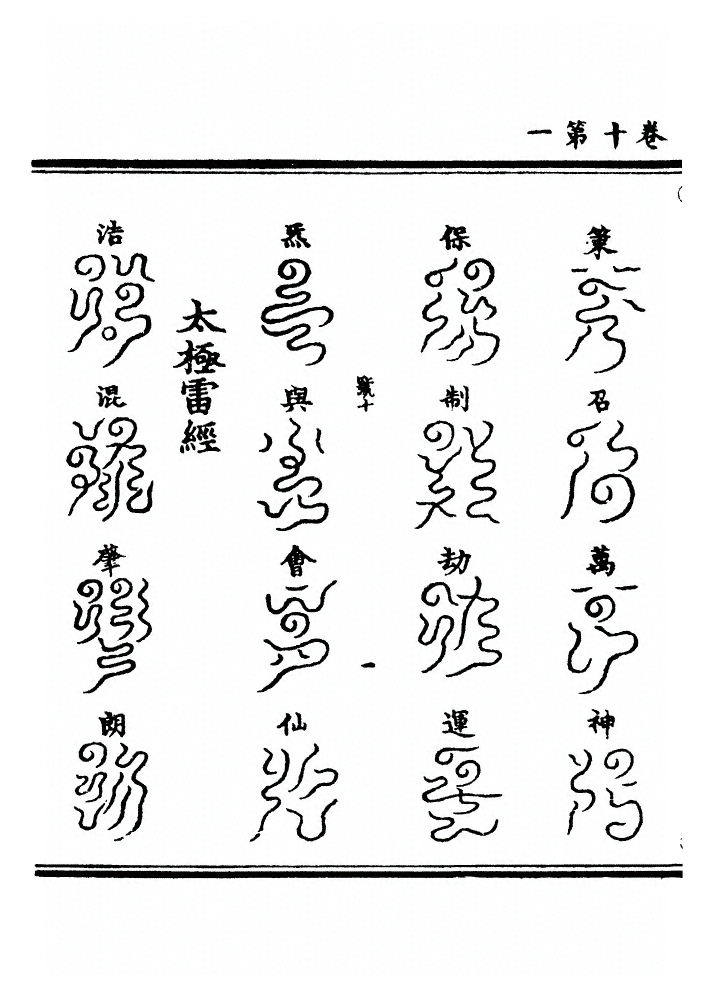 卷十第一
策召萬神
保制劫運
號十
一
炁與會仙
太極雷經
浩混肇朗